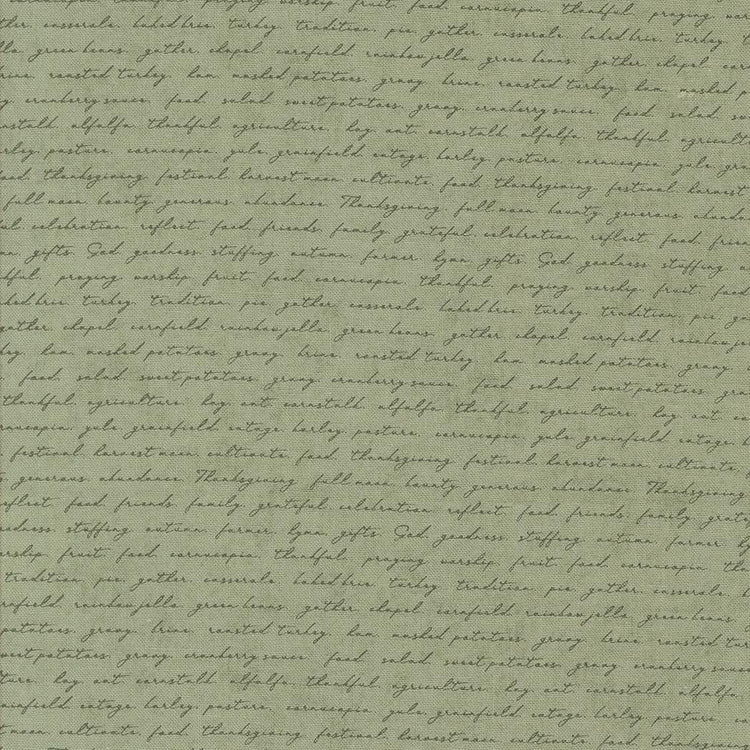 praying worship fruit. food. cornucopia. thankful. praying
casserole. baked brie. turkey. tradition. pie. gather. casserole. baked brie. turkey.
green beans. gather. chapel. cornfield. rainbow jello. green beans. gather. chapel.
roasted turkey. ham. mashed potatoes. gravy. brine. roasted turkey. ham. mashed
cranberry sauce. food. salad. sweet potatoes. gravy. cranberry sauce. food. salad.
alfalfa. thankful. agriculture. hay. oat. cornstalk. alfalfa. thankful.
pasture. cornucopia. yule. grainfield. cottage. barley. pasture. cornucopia. yule.
thanksgiving. festival. harvest moon. cultivate. food. thanksgiving. festival. harvest
full moon. bounty. generous. abundance. Thanksgiving. full moon. bounty. generous.
celebration. reflect. food. friends. family. grateful. celebration. reflect. food.
gifts. God. goodness. stuffing. autumn. farmer. hymn. gifts. God. goodness. stuffing.
praying worship. fruit. food. cornucopia. thankful. praying worship. fruit. food
turkey. tradition. pie. gather. casserole. baked brie. turkey. tradition. pie.
gather. chapel. cornfield. rainbow jello. green beans. gather. chapel. cornfield.
ham. mashed potatoes. gravy. brine. roasted turkey. ham. mashed potatoes. gravy.
food. salad. sweet potatoes. gravy. cranberry sauce. food. salad. sweet potatoes.
thankful. agriculture. hay. oat. cornstalk. alfalfa. thankful. agriculture. hay. oat.
yule. grainfield. cottage. barley. pasture. cornucopia. yule. grainfield. cottage.
festival. harvest moon. cultivate. food. thanksgiving. festival. harvest moon. cultivate.
generous. abundance. Thanksgiving. full moon. bounty. generous. abundance. Thanksgiving
food. friends. family. grateful. celebration. reflect. food. friends. family.
stuffing. autumn. farmer. hymn. gifts. God. goodness. stuffing. autumn. farmer.
fruit. food. cornucopia. thankful. praying worship. fruit. food. cornucopia.
tradition. pie. gather. casserole. baked brie. turkey. tradition. pie. gather. casserole.
rainbow jello. green beans. gather. chapel. cornfield. rainbow jello. green beans.
potatoes. gravy. brine. roasted turkey. ham. mashed potatoes. gravy. brine. roasted
potatoes. gravy. cranberry sauce. food. salad. sweet potatoes. gravy. cranberry sauce
hay. oat. cornstalk. alfalfa. thankful. agriculture. hay. oat. cornstalk. alfalfa.
cottage. barley. pasture. cornucopia. yule. grainfield. cottage. barley. pasture.
moon. cultivate. food. thanksgiving. festival. harvest moon. cultivate. food.